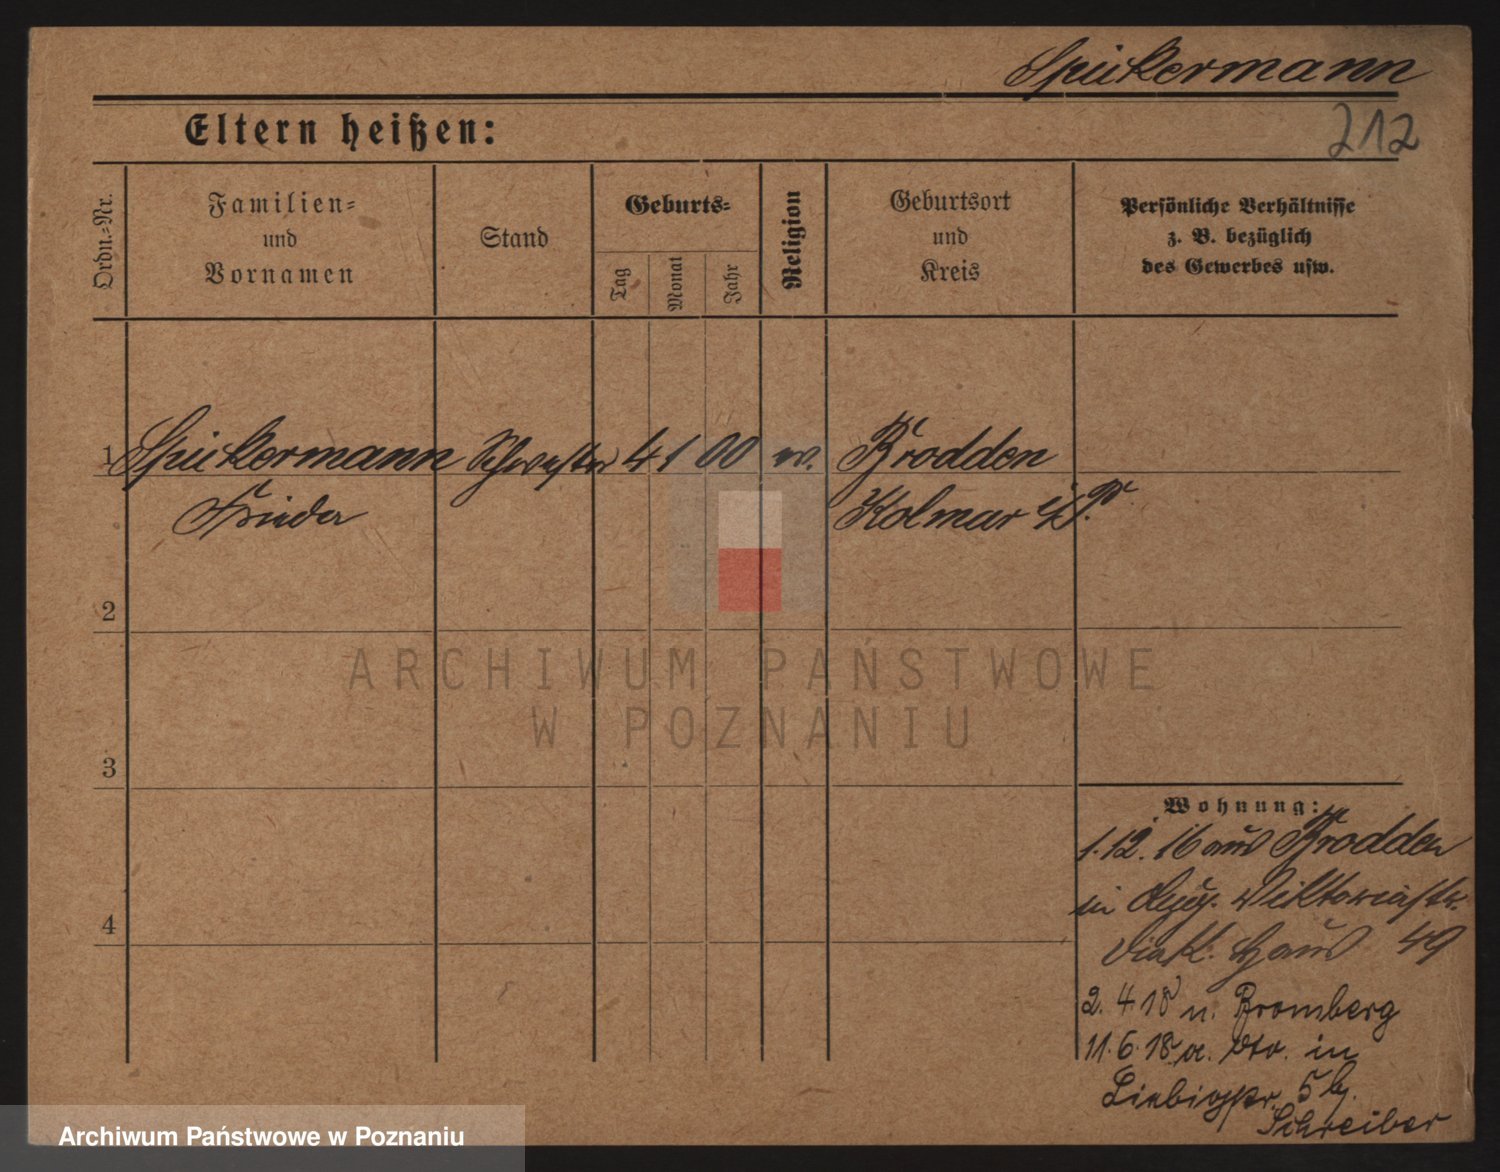 Spickermann
Eltern heißen:
212
Ordn.-Nr.
Familien-
und
Vornamen
Stand
Geburts-
Tag
Monat
Jahr
Religion
Geburtsort
und
Kreis
Persönliche Verhältnisse
z. B. bezüglich
des Gewerbes usw.
1 Spickermann Schwester 4 1 00 ev. Brodden
Frieda Kolmar i/P.
2
3
4
Wohnung:
1.12.16 aus Brodden
in Viktoriastr.
Diak. Haus 49
2.4.18 n. Bromberg
11.6.18 a. dto. in
Liebigstr. 5 b.
Schreiber
ARCHIWUM PAŃSTWOWE
W POZNANIU
Archiwum Państwowe w Poznaniu